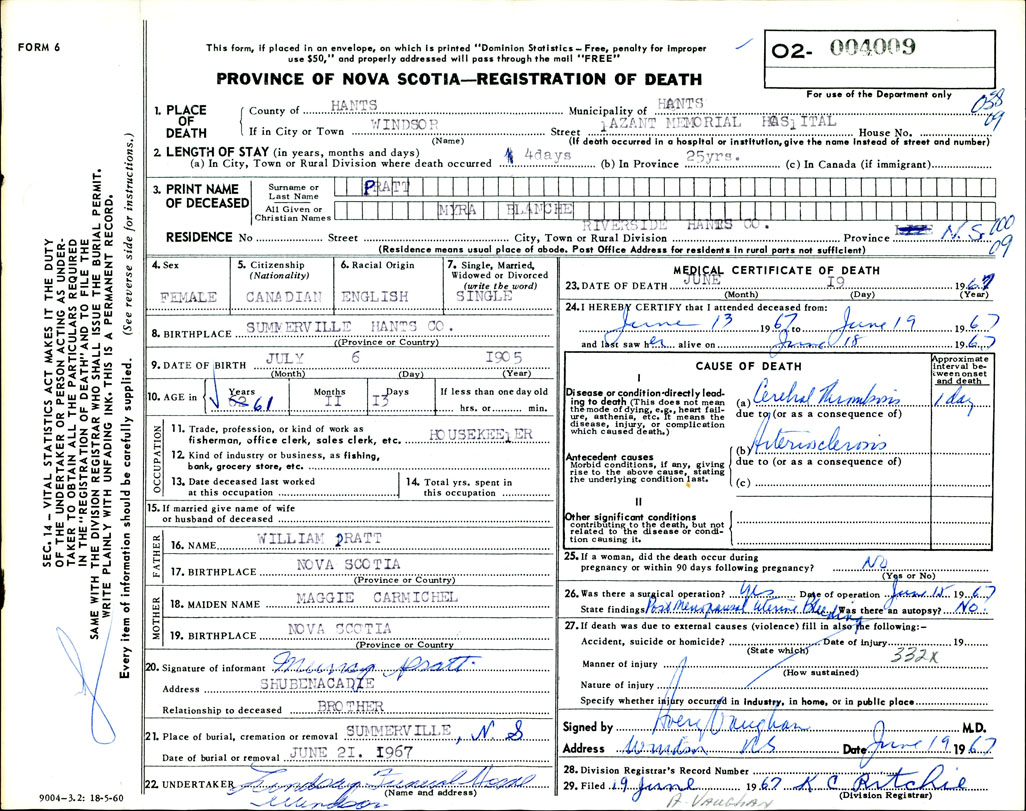 FORM 6
This form, if placed in an envelope, on which is printed "Dominion Statistics – Free, penalty for improper
use $50," and properly addressed will pass through the mail "FREE"
PROVINCE OF NOVA SCOTIA—REGISTRATION OF DEATH
O2- 004009
For use of the Department only
038
09
1. PLACE OF DEATH
County of HANTS Municipality of HANTS
If in City or Town WINDSOR Street HAZANT MEMORIAL HOSPITAL House No.
(Name) (If death occurred in a hospital or institution, give the name instead of street and number)
2. LENGTH OF STAY (in years, months and days)
(a) In City, Town or Rural Division where death occurred 4days (b) In Province 25yrs. (c) In Canada (if immigrant)
3. PRINT NAME OF DECEASED
Surname or Last Name PRATT
All Given or Christian Names MYRA BLANCHE
RIVERSIDE HANTS CO.
RESIDENCE No Street City, Town or Rural Division Province N.S.
200
09
(Residence means usual place of abode. Post Office Address for residents in rural parts not sufficient)
4. Sex FEMALE
5. Citizenship (Nationality) CANADIAN
6. Racial Origin ENGLISH
7. Single, Married, Widowed or Divorced (write the word) SINGLE
8. BIRTHPLACE SUMMERVILLE HANTS CO.
(Province or Country)
9. DATE OF BIRTH JULY 6 1905
(Month) (Day) (Year)
10. AGE in Years 62 61 Months 11 Days 13 If less than one day old hrs. or min.
OCCUPATION
11. Trade, profession, or kind of work as
fisherman, office clerk, sales clerk, etc. HOUSEKEEPER
12. Kind of industry or business, as fishing,
bank, grocery store, etc.
13. Date deceased last worked
at this occupation
14. Total yrs. spent in
this occupation
15. If married give name of wife
or husband of deceased
FATHER
16. NAME WILLIAM PRATT
17. BIRTHPLACE NOVA SCOTIA
(Province or Country)
MOTHER
18. MAIDEN NAME MAGGIE CARMICHEL
19. BIRTHPLACE NOVA SCOTIA
(Province or Country
20. Signature of informant Murray Pratt
Address SHUBENACADIE
Relationship to deceased BROTHER
21. Place of burial, cremation or removal SUMMERVILLE, N. S
Date of burial or removal JUNE 21. 1967
22. UNDERTAKER Lindsay Funeral Home
(Name and address)
Windsor
9004–3.2: 18-5-60
MEDICAL CERTIFICATE OF DEATH
23. DATE OF DEATH JUNE 19 1967
(Month) (Day) (Year)
24. I HEREBY CERTIFY that I attended deceased from:
June 13 1967 to June 19 1967
and last saw her alive on June 18 1967
CAUSE OF DEATH
Approximate interval between onset and death
I
Disease or condition-directly leading to death (This does not mean the mode of dying, e.g., heart failure, asthenia, etc. It means the disease, injury, or complication which caused death.)
(a) Cerebral Thrombosis 1 day
due to (or as a consequence of)
(b) Arteriosclerosis
Antecedent causes
Morbid conditions, if any, giving rise to the above cause, stating the underlying condition last.
due to (or as a consequence of)
(c)
II
Other significant conditions
contributing to the death, but not related to the disease or condition causing it.
25. If a woman, did the death occur during
pregnancy or within 90 days following pregnancy? No
(Yes or No)
26. Was there a surgical operation? Yes Date of operation June 15 1967
State findings Post Menopausal Uterine Bleeding Was there an autopsy? No
27. If death was due to external causes (violence) fill in also the following:–
Accident, suicide or homicide? Date of injury 19
(State which)
332X
Manner of injury
(How sustained)
Nature of injury
Specify whether injury occurred in Industry, in home, or in public place
Signed by Avery Vaughan M.D.
Address Windsor NS Date June 19 1967
28. Division Registrar's Record Number
29. Filed 19 June 1967 K C Ritchie
(Division Registrar)
A. VAUGHAN
SEC. 14 – VITAL STATISTICS ACT MAKES IT THE DUTY
OF THE UNDERTAKER OR PERSON ACTING AS UNDER-
TAKER TO OBTAIN ALL THE PARTICULARS REQUIRED
IN THE "REGISTRATION OF DEATH" AND TO FILE THE
SAME WITH THE DIVISION REGISTRAR WHO SHALL ISSUE THE BURIAL PERMIT.
WRITE PLAINLY WITH UNFADING INK. THIS IS A PERMANENT RECORD.
Every item of information should be carefully supplied. (See reverse side for instructions.)